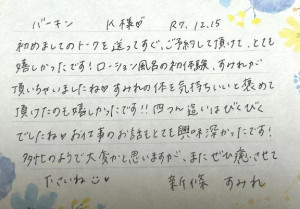 バーキン K様♡ R7.12.15
初めましてのトークを送ってすぐ、ご予約して頂けて、とても
嬉しかったです!ローション風呂の初体験、すみれが
頂いちゃいましたね♡すみれの体を気持ちいいと褒めて
頂けたのも嬉しかったです!!四つん這いはびくびく
でしたね♡お仕事のお話もとても興味深かったです!
多忙のようで大変かと思いますが、またぜひ癒させて
くださいね
新條 すみれ